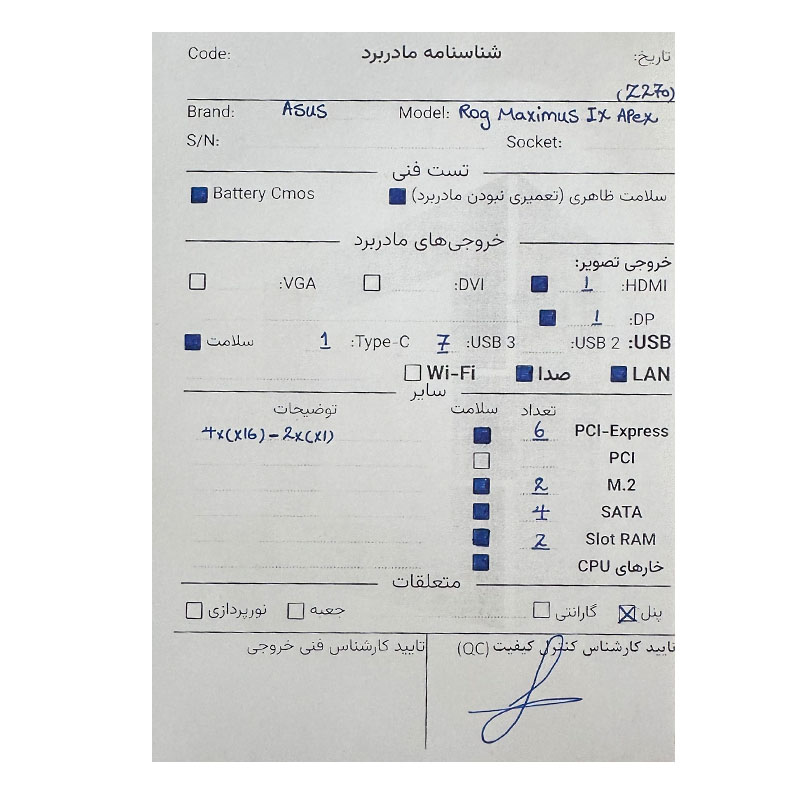 Code: شناسنامه مادربرد تاریخ:
(Z270)
Brand: ASUS Model: Rog Maximus IX Apex
S/N: Socket:
تست فنی
Battery Cmos سلامت ظاهری (تعمیری نبودن مادربرد)
خروجی‌های مادربرد
خروجی تصویر:
HDMI: 1 DVI: VGA:
DP: 1
USB: USB 2: USB 3: 7 Type-C: 1 سلامت
LAN صدا Wi-Fi
سایر
تعداد سلامت توضیحات
PCI-Express 6 4x(x16) - 2x(x1)
PCI
M.2 2
SATA 4
Slot RAM 2
خارهای CPU
متعلقات
پنل گارانتی جعبه نورپردازی
تایید کارشناس کنترل کیفیت (QC) تایید کارشناس فنی خروجی